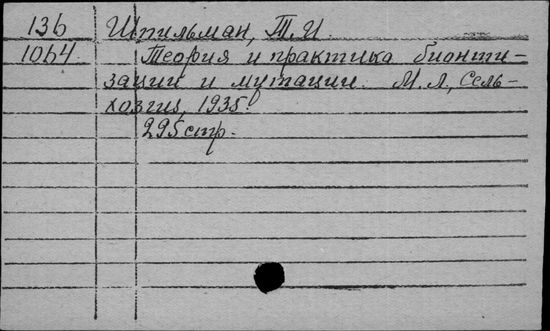 136 Шпильман, Т. И.
1064 Теория и практика бионти-
зации и мутации. М. Л., Сель-
хозгиз, 1935.
295 стр.